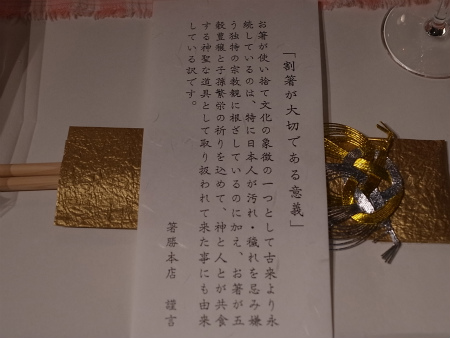 「割箸が大切である意義」
お箸が使い捨て文化の象徴の一つとして古来より永
続しているのは、特に日本人が汚れ・穢れを忌み嫌
う独特の宗教観に根ざしているのに加え、お箸が五
穀豊穣と子孫繁栄の祈りを込めて、神と人とが共食
する神聖な道具として取り扱われて来た事にも由来
している訳です。
箸勝本店　謹言